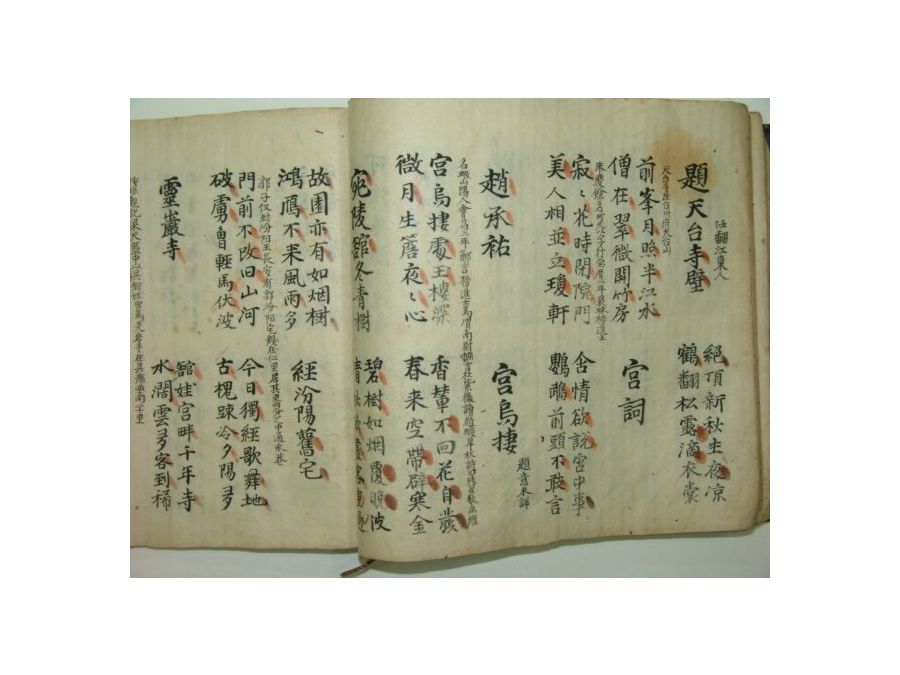 題天台寺壁
任翻江東人
天台寺在台州府天台山
絶頂新秋生夜凉
鶴翻松露滴衣裳
前峯月照半江水
僧在翠微開竹房
宮詞
朱慶餘名可久以字行宝曆二年裴楙榜進士
寂〻花時閉院門
美人相並立瓊軒
含情欲說宮中事
鸚鵡前頭不敢言
趙承祐
宮烏捿
題意未詳
宮烏捿處玉樓深
微月生簷夜〻心
香輦不回花自發
春来空帶辟寒金
宛陵舘冬青樹
碧樹如烟覆晚波
故園亦有如烟樹
鴻鴈不来風雨多
經汾陽舊宅
門前不改旧山河
破虜曾輕馬伏波
今日獨經歌舞地
古槐疎冷夕陽多
靈巖寺
舘娃宮畔千年寺
水濶雲多客到稀